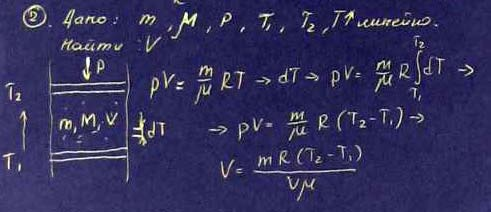 ② Дано: m, M, P, T₁, T₂, T↑ линейно.
Найти: V
↓P
T₂
m, M, V
dT
T₁
pV = m/μ RT → dT → pV = m/μ R ∫_{T₁}^{T₂} dT →
→ pV = m/μ R (T₂ - T₁) →
V = mR (T₂ - T₁) / Vμ